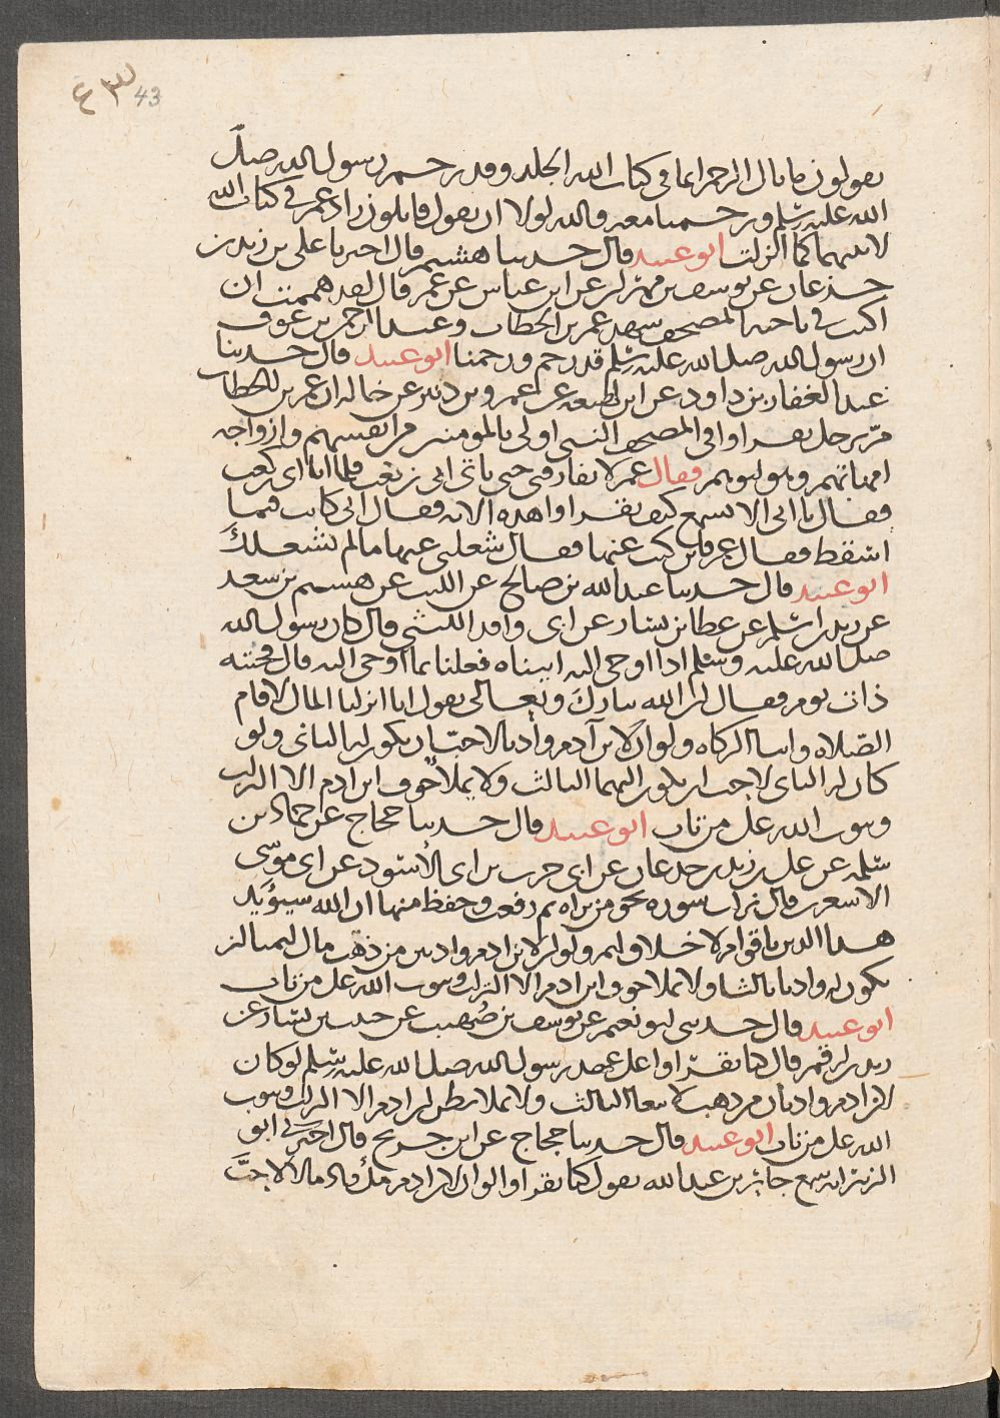 ٤٣ 43
يقولون ما بال الرجم انما في كتاب الله الجلد وقد رجم رسول الله صلى
الله عليه وسلم ورجمنا معه والله لولا ان يقول قايلون زاد عمر في كتاب الله
لاثبتها كما انزلت ابو عبيد قال حدثنا هشيم قال اخبرنا علي بن زيد بن
جذعان عن يوسف بن مهران عن ابن عباس عن عمر قال لقد هممت ان
اكتب في ناحية المصحف شهد عمر بن الخطاب وعبد الرحمن بن عوف
ان رسول الله صلى الله عليه وسلم قد رجم ورجمنا ابو عبيد قال حدثنا
عبد الغفار بن داود عن ابن لهيعة عن عمرو بن دينار عن بجالة ان عمر بن الخطاب
مر برجل يقرا في المصحف النبي اولى بالمومنين من انفسهم وازواجه
امهاتهم وهو ابوهم فقال عمر لا تفارقني حتى ناتي ابي بن كعب فلما اتيا ابي بن كعب
فقال يا ابي الا تسمع كيف يقرا هذا هذه الاية فقال ابي كانت فيما
اسقط فقال عمر فاين كنت عنها فقال شغلني عنها ما لم يشغلك
ابو عبيد قال حدثنا عبد الله بن صالح عن الليث عن هشيم بن سعد
عن زيد بن اسلم عن عطا بن يسار عن ابي واقد الليثي قال كان رسول الله
صلى الله عليه وسلم اذا اوحي اليه اتيناه فعلمنا مما اوحي اليه قال فجئته
ذات يوم فقال ان الله تبارك وتعالى يقول انا انزلنا المال لاقام
الصلاه وايتا الزكاه ولو ان لابن آدم واديا لاحب ان يكون اليه الثاني ولو
كان له الثاني لاحب ان يكون اليهما الثالث ولا يملا جوف ابن ادم الا التراب
ويتوب الله على من تاب ابو عبيد قال حدثنا حجاج عن حماد بن
سلمة عن علي بن زيد بن جدعان عن ابي حرب بن ابي الاسود عن ابي موسى
الاشعري قال نزلت سورة نحو من براه ثم رفعت وحفظ منها ان الله سيؤيد
هذا الدين باقوام لا خلاق لهم ولو ان لابن ادم واديين من ذهب مال لتمنا ان
يكون له واديا ثالثا ولا يملا جوف ابن ادم الا التراب ويتوب الله على من تاب
ابو عبيد قال حدثني ابو نعيم عن يوسف بن صهيب عن حبيب بن يسار عن
زيد بن ارقم قال كنا نقرا على عهد رسول الله صلى الله عليه وسلم لو كان
لابن ادم واديان من ذهب لابتغا الثالث ولا يملا بطن ابن ادم الا التراب ويتوب
الله على من تاب ابو عبيد قال حدثنا حجاج عن ابن جريج قال اخبرني ابو
الزبير انه سمع جابر بن عبد الله يقول كنا نقرا لو ان لابن ادم ملء واد مالا لاحب